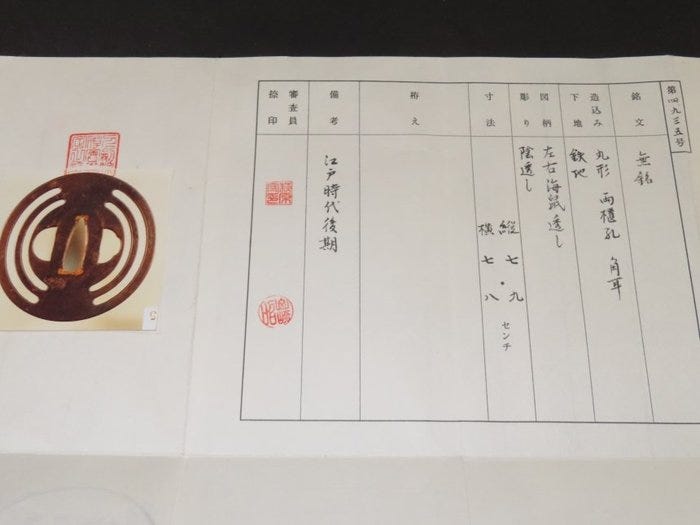 第四九三五号
銘文
無銘
造込み
丸形 両櫃孔 角耳
下地
鉄地
図柄
左右海鼠透し
彫り
陰透し
寸法
縦 七・九
横 七・八
センチ
拵え
備考
江戸時代後期
審査員
捺印